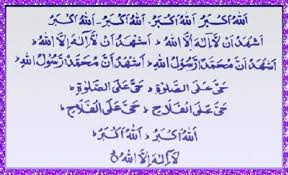 اَللهُ اَكْبَرُ اَللهُ اَكْبَرُ۔ اَللهُ اَكْبَرُ۔ اَللهُ اَكْبَرُ
اَشْهَدُ اَنْ لَّآ اِلٰهَ اِلَّا اللهُ ؕ اَشْهَدُ اَنْ لَّآ اِلٰهَ اِلَّا اللهُ ؕ
اَشْهَدُ اَنَّ مُحَمَّدًا رَّسُوْلُ اللهِ ؕ اَشْهَدُ اَنَّ مُحَمَّدًا رَّسُوْلُ اللهِ ؕ
حَيَّ عَلَى الصَّلٰوةِ ؕ حَيَّ عَلَى الصَّلٰوةِ ؕ
حَيَّ عَلَى الْفَلَاحِ ؕ حَيَّ عَلَى الْفَلَاحِ ؕ
اَللهُ اَكْبَرُ ؕ اَللهُ اَكْبَرُ
لَآ اِلٰهَ اِلَّا اللهُ